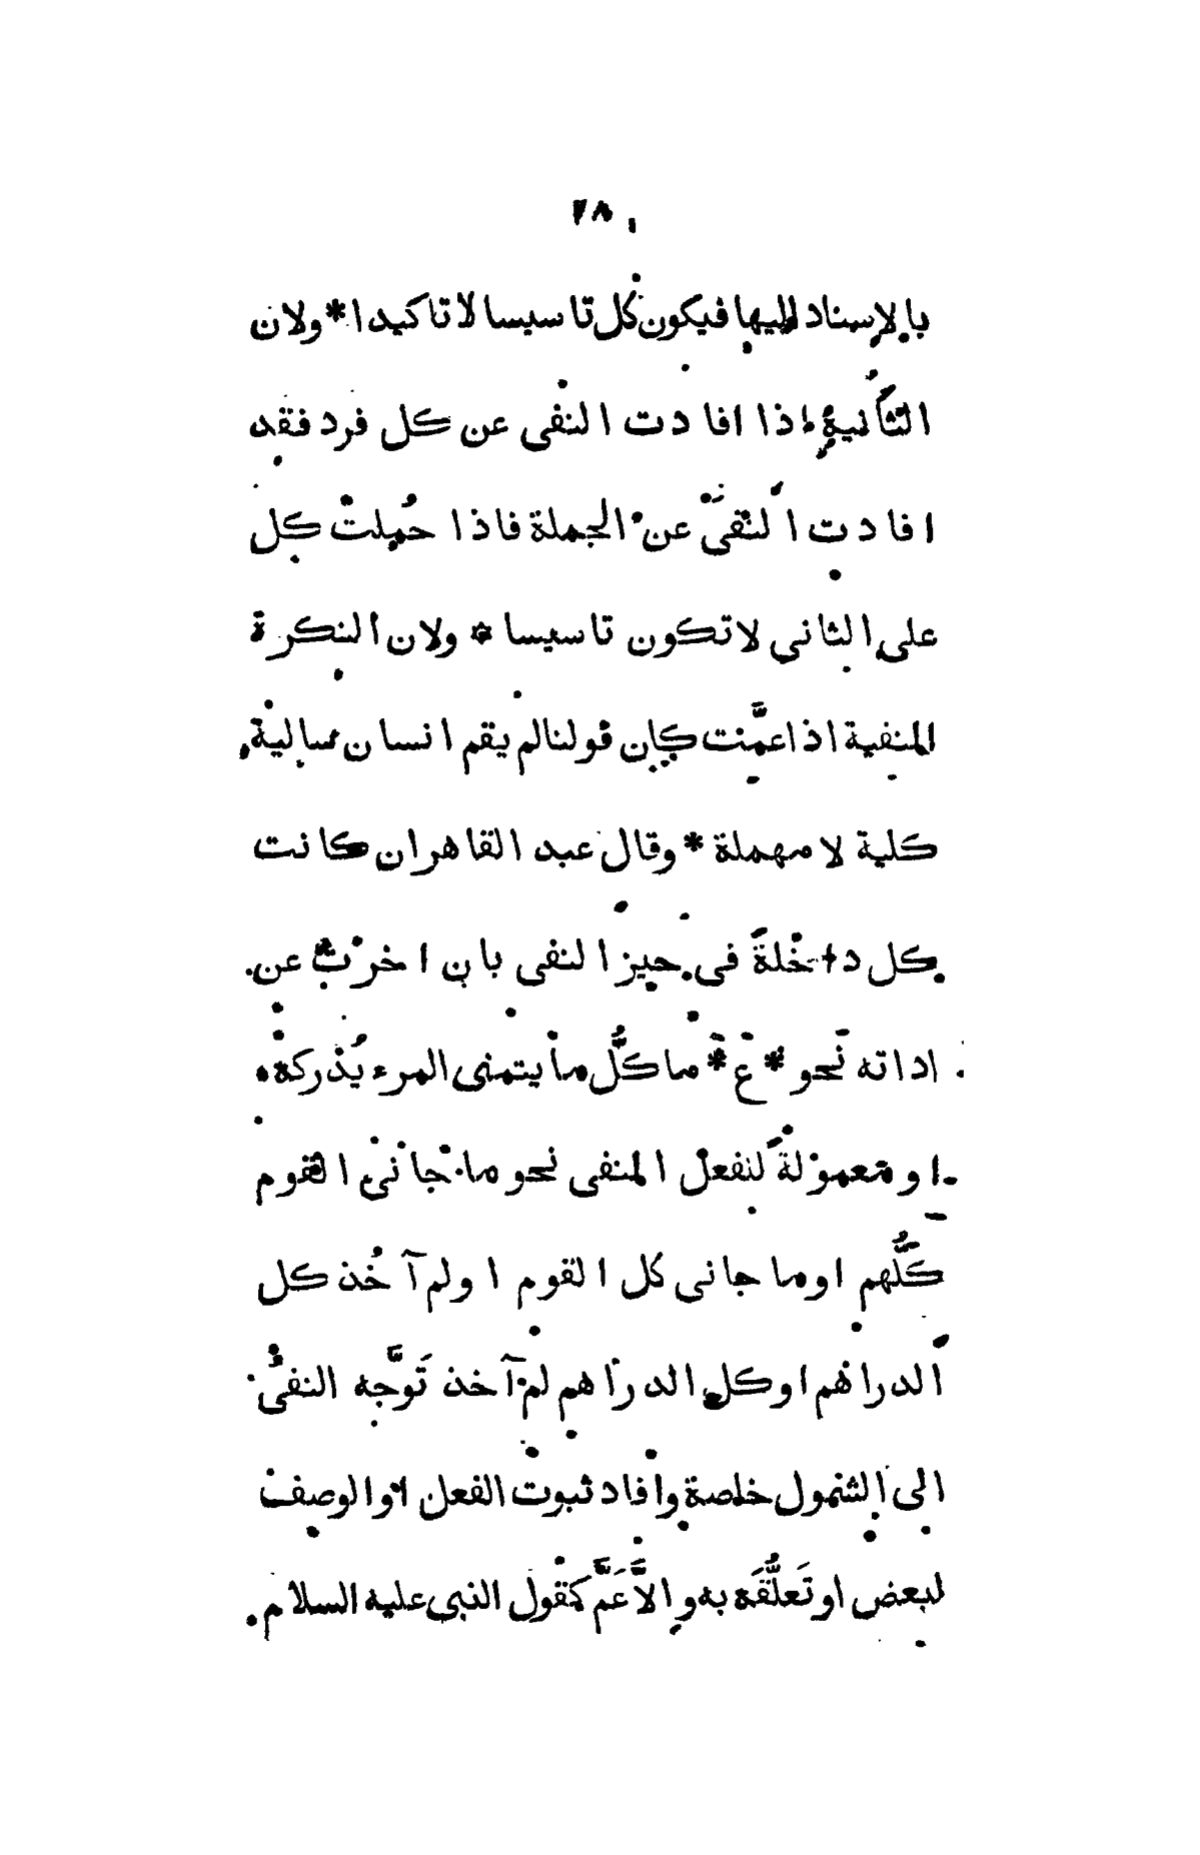 ٢٨
بالإسناد اليها فيكون كل تاسيسا لا تاكيدا * ولان
الثانية اذا افادت النفى عن كل فرد فقد
افادت النفىَ عن الجملة فاذا حُملت كل
على الثاني لا تكون تاسيسا * ولان النكرة
المنفية اذا عمَّت كان قولنا لم يقم انسان سالبة
كلية لا مهملة * وقال عبد القاهر ان كانت
كل داخلةً فى حيز النفى بان اخرت عن
اداته نَحو * ع * ما كلُّ ما يتمنى المرء يُدركه
او معمولةً للفعل المنفى نحو ما جانى القوم
كلُّهم او ما جانى كل القوم او لم آخُذ كل
الدراهم او كل الدراهم لم آخذ تَوجَّه النفىُ
الى الشمول خاصة وافاد ثبوت الفعل او الوصف
لبعض او تَعلُّقَه به والاَّ عَمَّ كقول النبى عليه السلام